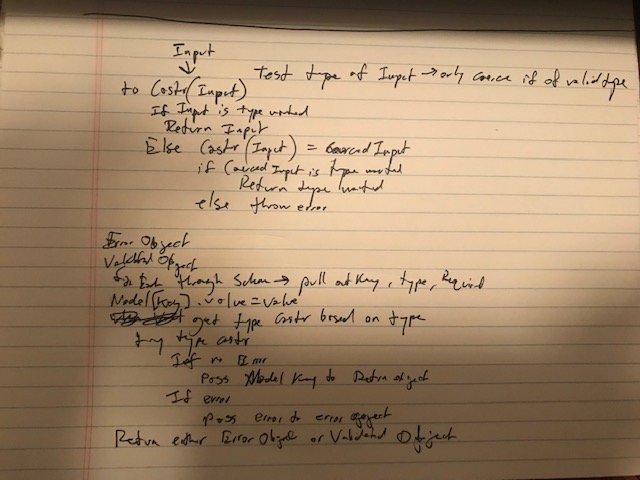 Input
↓
Test type of Input → only coerce if of valid type
to Castr(Input)
If Input is type wanted
Return Input
Else Castr(Input) = Coerced Input
if Coerced Input is type wanted
Return type wanted
else throw error
Error Object
Validated Object
for Each through Schema → pull out Key, type, Required
Model[Key].value = value
get type castr based on type
try type castr
If no Error
Pass Model Key to Return object
If error
pass error to error object
Return either Error Object or Validated Object